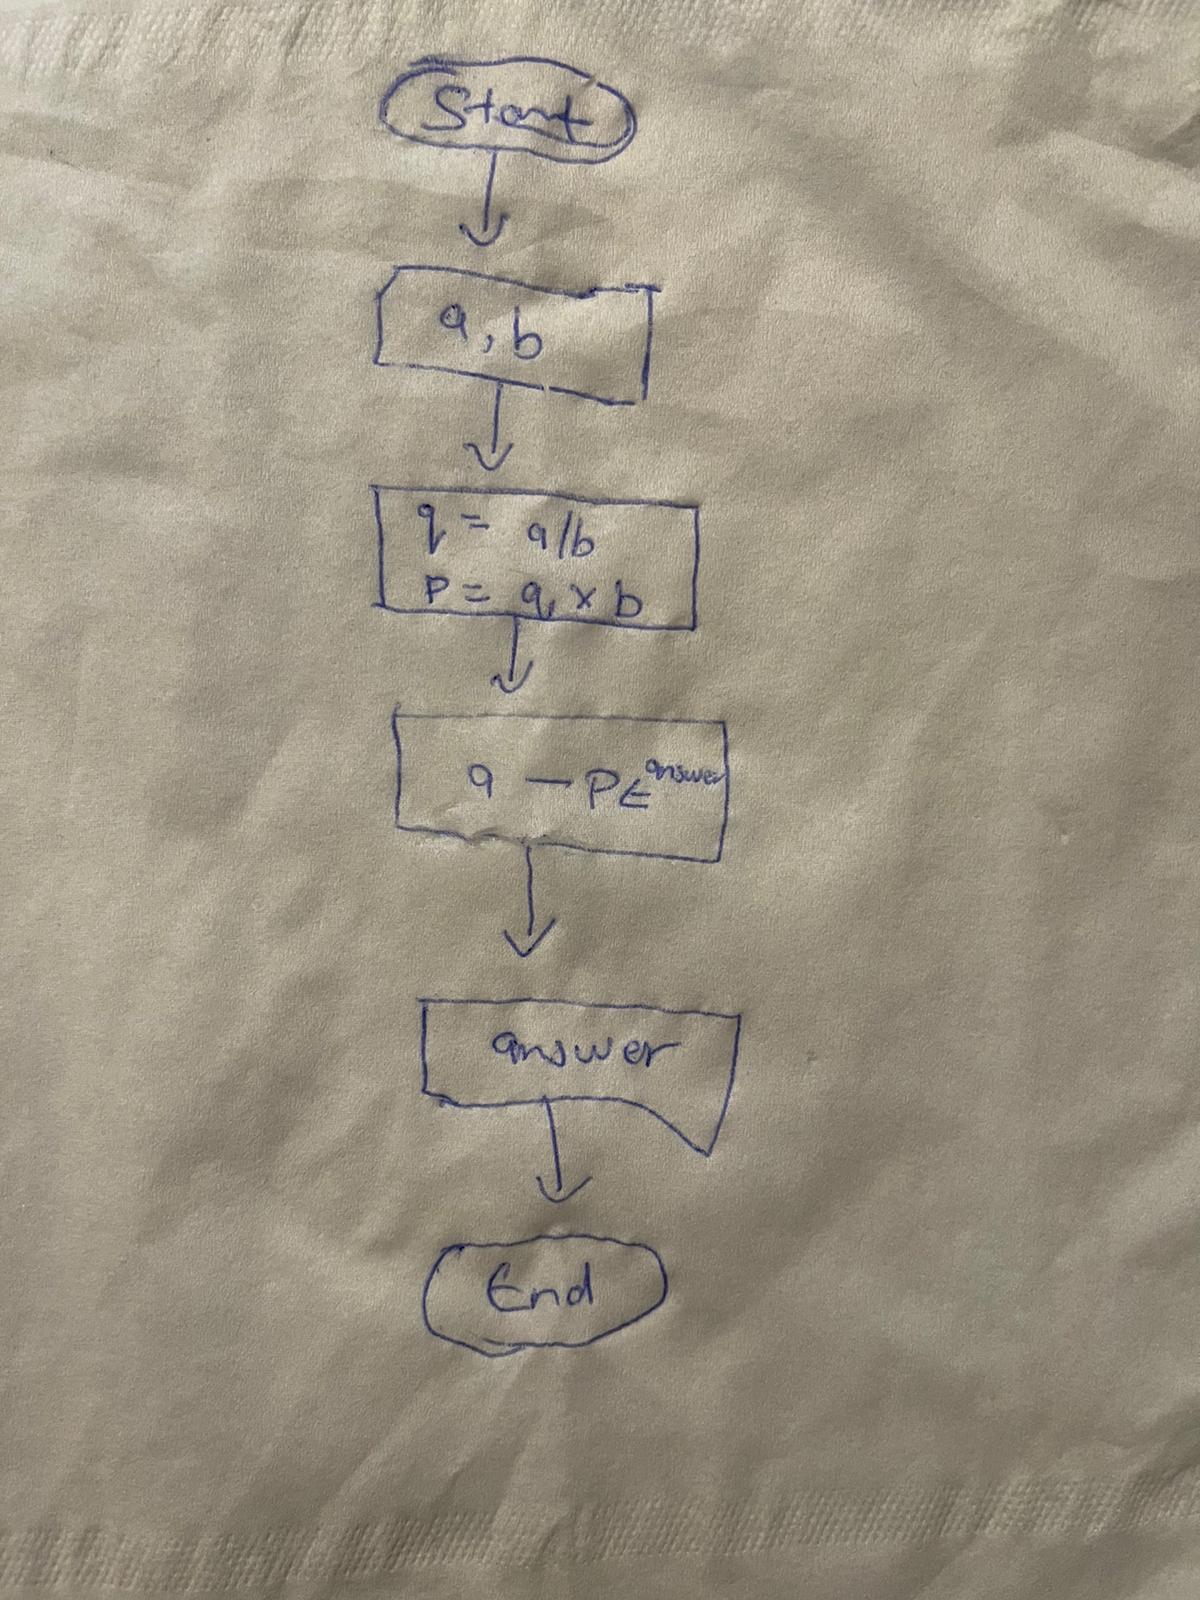 Start
a, b
q = a/b
P = q x b
a — P ← answer
answer
End